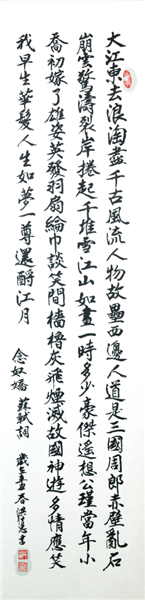 大江東去浪淘盡千古風流人物故壘西邊人道是三國周郎赤壁亂石
崩雲驚濤裂岸捲起千堆雪江山如畫一時多少豪傑遙想公瑾當年小
喬初嫁了雄姿英發羽扇綸巾談笑間檣櫓灰飛煙滅故國神遊多情應笑
我早生華髮人生如夢一尊還酹江月
念奴嬌 蘇軾詞 歲在辛丑春 洪